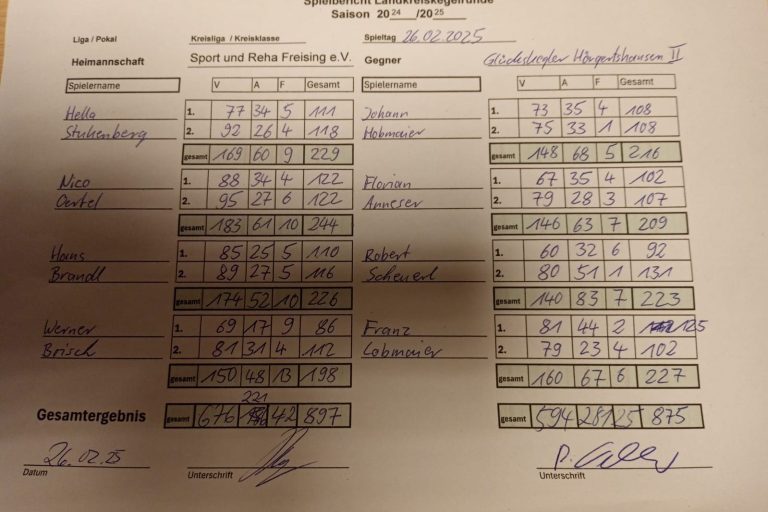 Spielbericht Landkreiskegelrunde
Saison 2024 /2025
Liga / Pokal Kreisliga / Kreisklasse Spieltag 26.02.2025
Heimannschaft Sport und Reha Freising e.V. Gegner Glückskegler Hörgertshausen II
Spielername V A F Gesamt Spielername V A F Gesamt
Hella 1. 77 34 5 111 Johann 1. 73 35 4 108
Stuhenberg 2. 92 26 4 118 Hobmaier 2. 75 33 1 108
gesamt 169 60 9 229 gesamt 148 68 5 216
Nico 1. 88 34 4 122 Florian 1. 67 35 4 102
Oertel 2. 95 27 6 122 Anneser 2. 79 28 3 107
gesamt 183 61 10 244 gesamt 146 63 7 209
Hans 1. 85 25 5 110 Robert 1. 60 32 6 92
Brandl 2. 89 27 5 116 Scheuerl 2. 80 51 1 131
gesamt 174 52 10 226 gesamt 140 83 7 223
Werner 1. 69 17 9 86 Franz 1. 81 44 2 125
Brisch 2. 81 31 4 112 Lobmaier 2. 79 23 4 102
gesamt 150 48 13 198 gesamt 160 67 6 227
221
Gesamtergebnis gesamt 676 42 897 gesamt 594 281 25 875
26.02.25
Datum Unterschrift Unterschrift